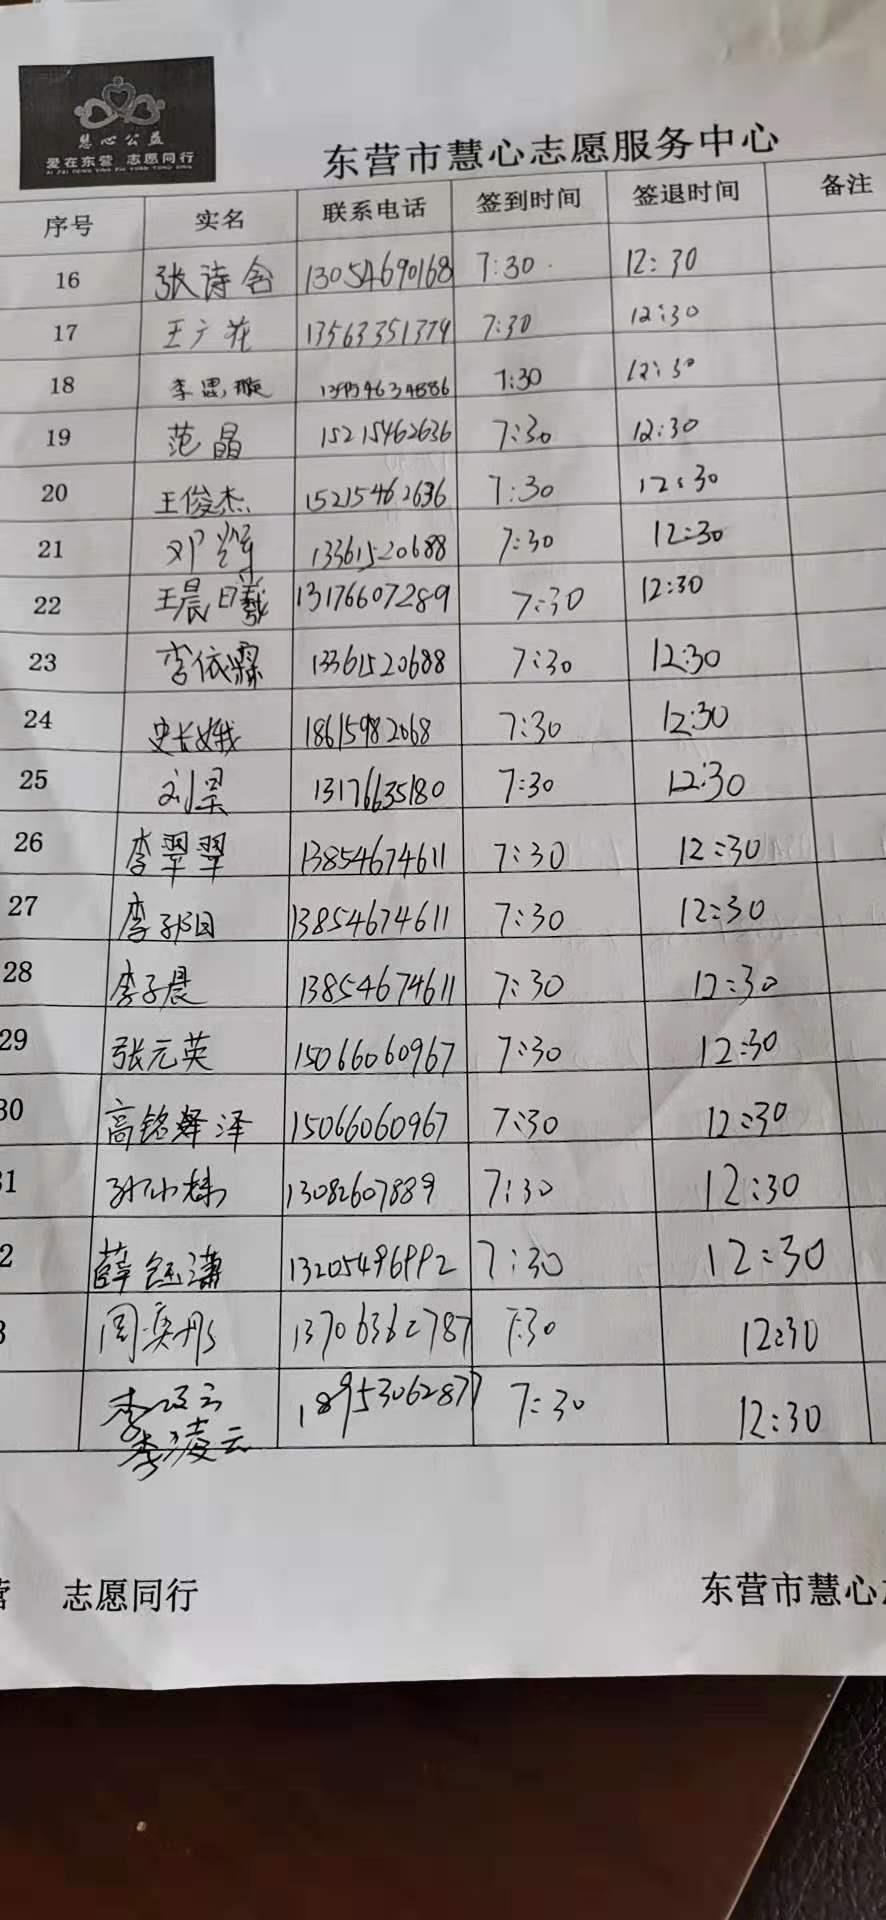 慧心公益
爱在东营 志愿同行
AI ZAI DONG YING ZHI YUAN TONG XING
东营市慧心志愿服务中心
序号 实名 联系电话 签到时间 签退时间 备注
16 张诗含 13054690168 7:30 12:30
17 王广花 13563351379 7:30 12:30
18 李思璇 7:30 12:30
19 范晶 15215462636 7:30 12:30
20 王俊杰 15215462636 7:30 12:30
21 邓 13361520688 7:30 12:30
22 王晨曦 13176607289 7:30 12:30
23 李依霖 13361520688 7:30 12:30
24 史长娥 18615982068 7:30 12:30
25 刘 13176635180 7:30 12:30
26 李翠翠 13854674611 7:30 12:30
27 李 13854674611 7:30 12:30
28 李子晨 13854674611 7:30 12:30
29 张元英 15066060967 7:30 12:30
30 高铭泽 15066060967 7:30 12:30
1 孙小 13082607889 7:30 12:30
2 薛钰潇 13205496992 7:30 12:30
3 周奕彤 13706362787 7:30 12:30
李凌云 18953062877 7:30 12:30
李凌云
营 志愿同行 东营市慧心